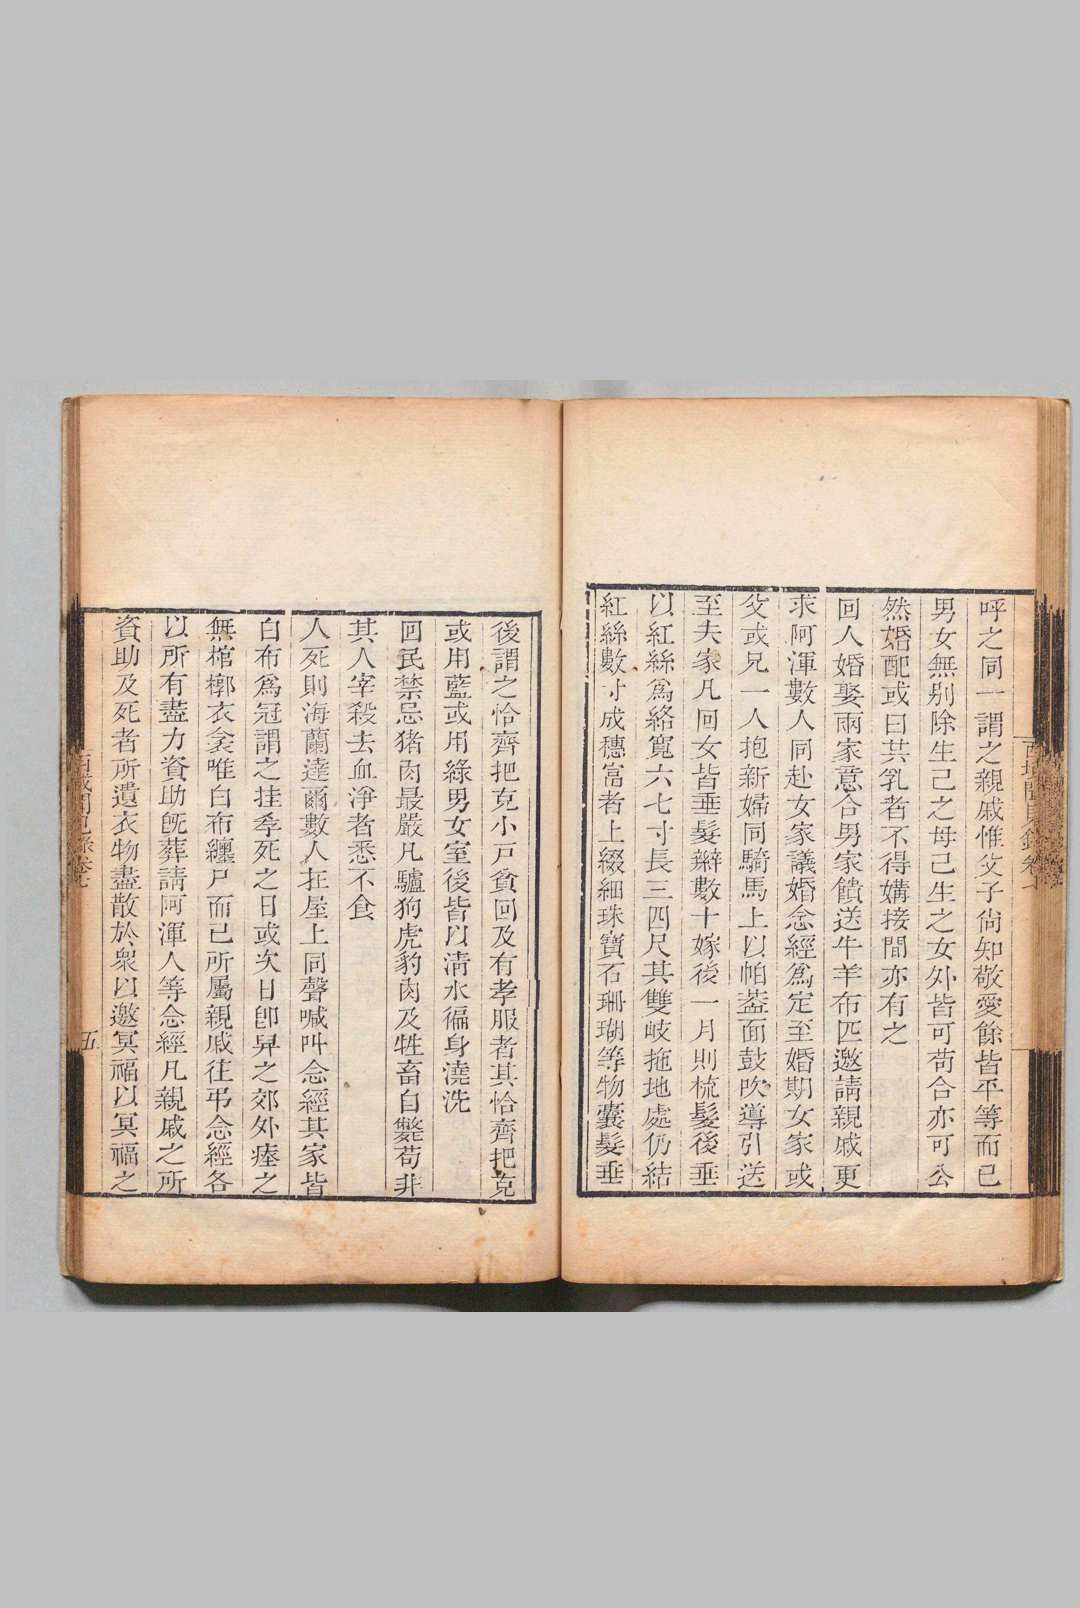 呼之同一謂之親戚惟父子尙知敬愛餘皆平等而已
男女無别除生己之母己生之女外皆可苟合亦可公
然婚配或曰其乳者不得媾接間亦有之
回人婚娶兩家意合男家饋送牛羊布匹邀請親戚更
求阿渾數人同赴女家議婚念經爲定至婚期女家或
父或兄一人抱新婦同騎馬上以帕葢面鼓吹導引送
至夫家凡回女皆垂髮辮數十嫁後一月則梳髮後垂
以紅絲爲絡寬六七寸長三四尺其雙岐拖地處仍結
紅絲數寸成穗富者上綴細珠寶石珊瑚等物囊髮垂
後謂之恰齊把克小戸貧回及有孝服者其恰齊把克
或用藍或用綠男女室後皆以淸水徧身澆洗
回民禁忌猪肉最嚴凡驢狗虎豹肉及牲畜自斃苟非
其人宰殺去血淨者悉不食
人死則海蘭達爾數人在屋上同聲喊叫念經其家皆
白布爲冠謂之挂孝死之日或次日卽舁之郊外瘞之
無棺槨衣衾唯白布纏尸而已所屬親戚往弔念經各
以所有盡力資助旣葬請阿渾人等念經凡親戚之所
資助及死者所遺衣物盡散於衆以邀冥福以冥福之
西域聞見錄卷七
五